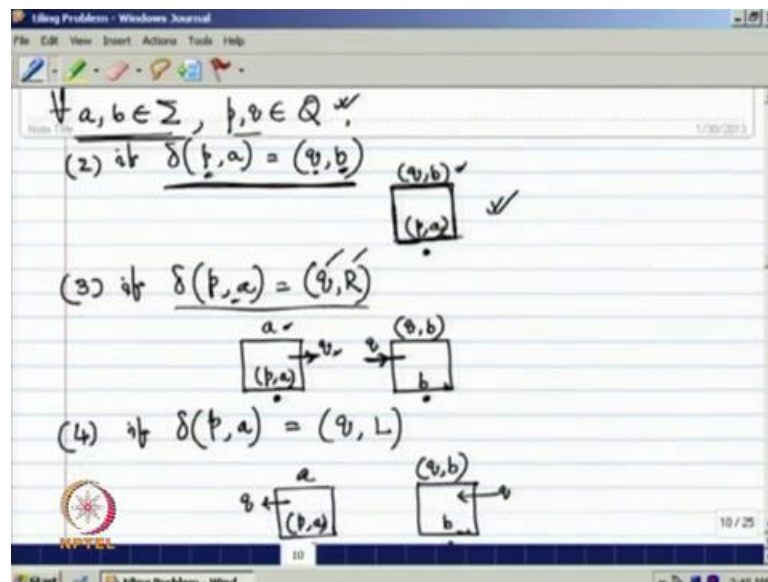 tiling Problem - Windows Journal
File Edit View Insert Actions Tools Help
∀ a, b ∈ Σ, p, q ∈ Q
Note Title
1/30/2013
(2) if δ(p, a) = (q, b)
(q, b)
(p, a)
(3) if δ(p, a) = (q, R)
a (q, b)
q q
(p, a) b
(4) if δ(p, a) = (q, L)
a (q, b)
q q
(p, a) b
NPTEL
10
10 / 25
Start